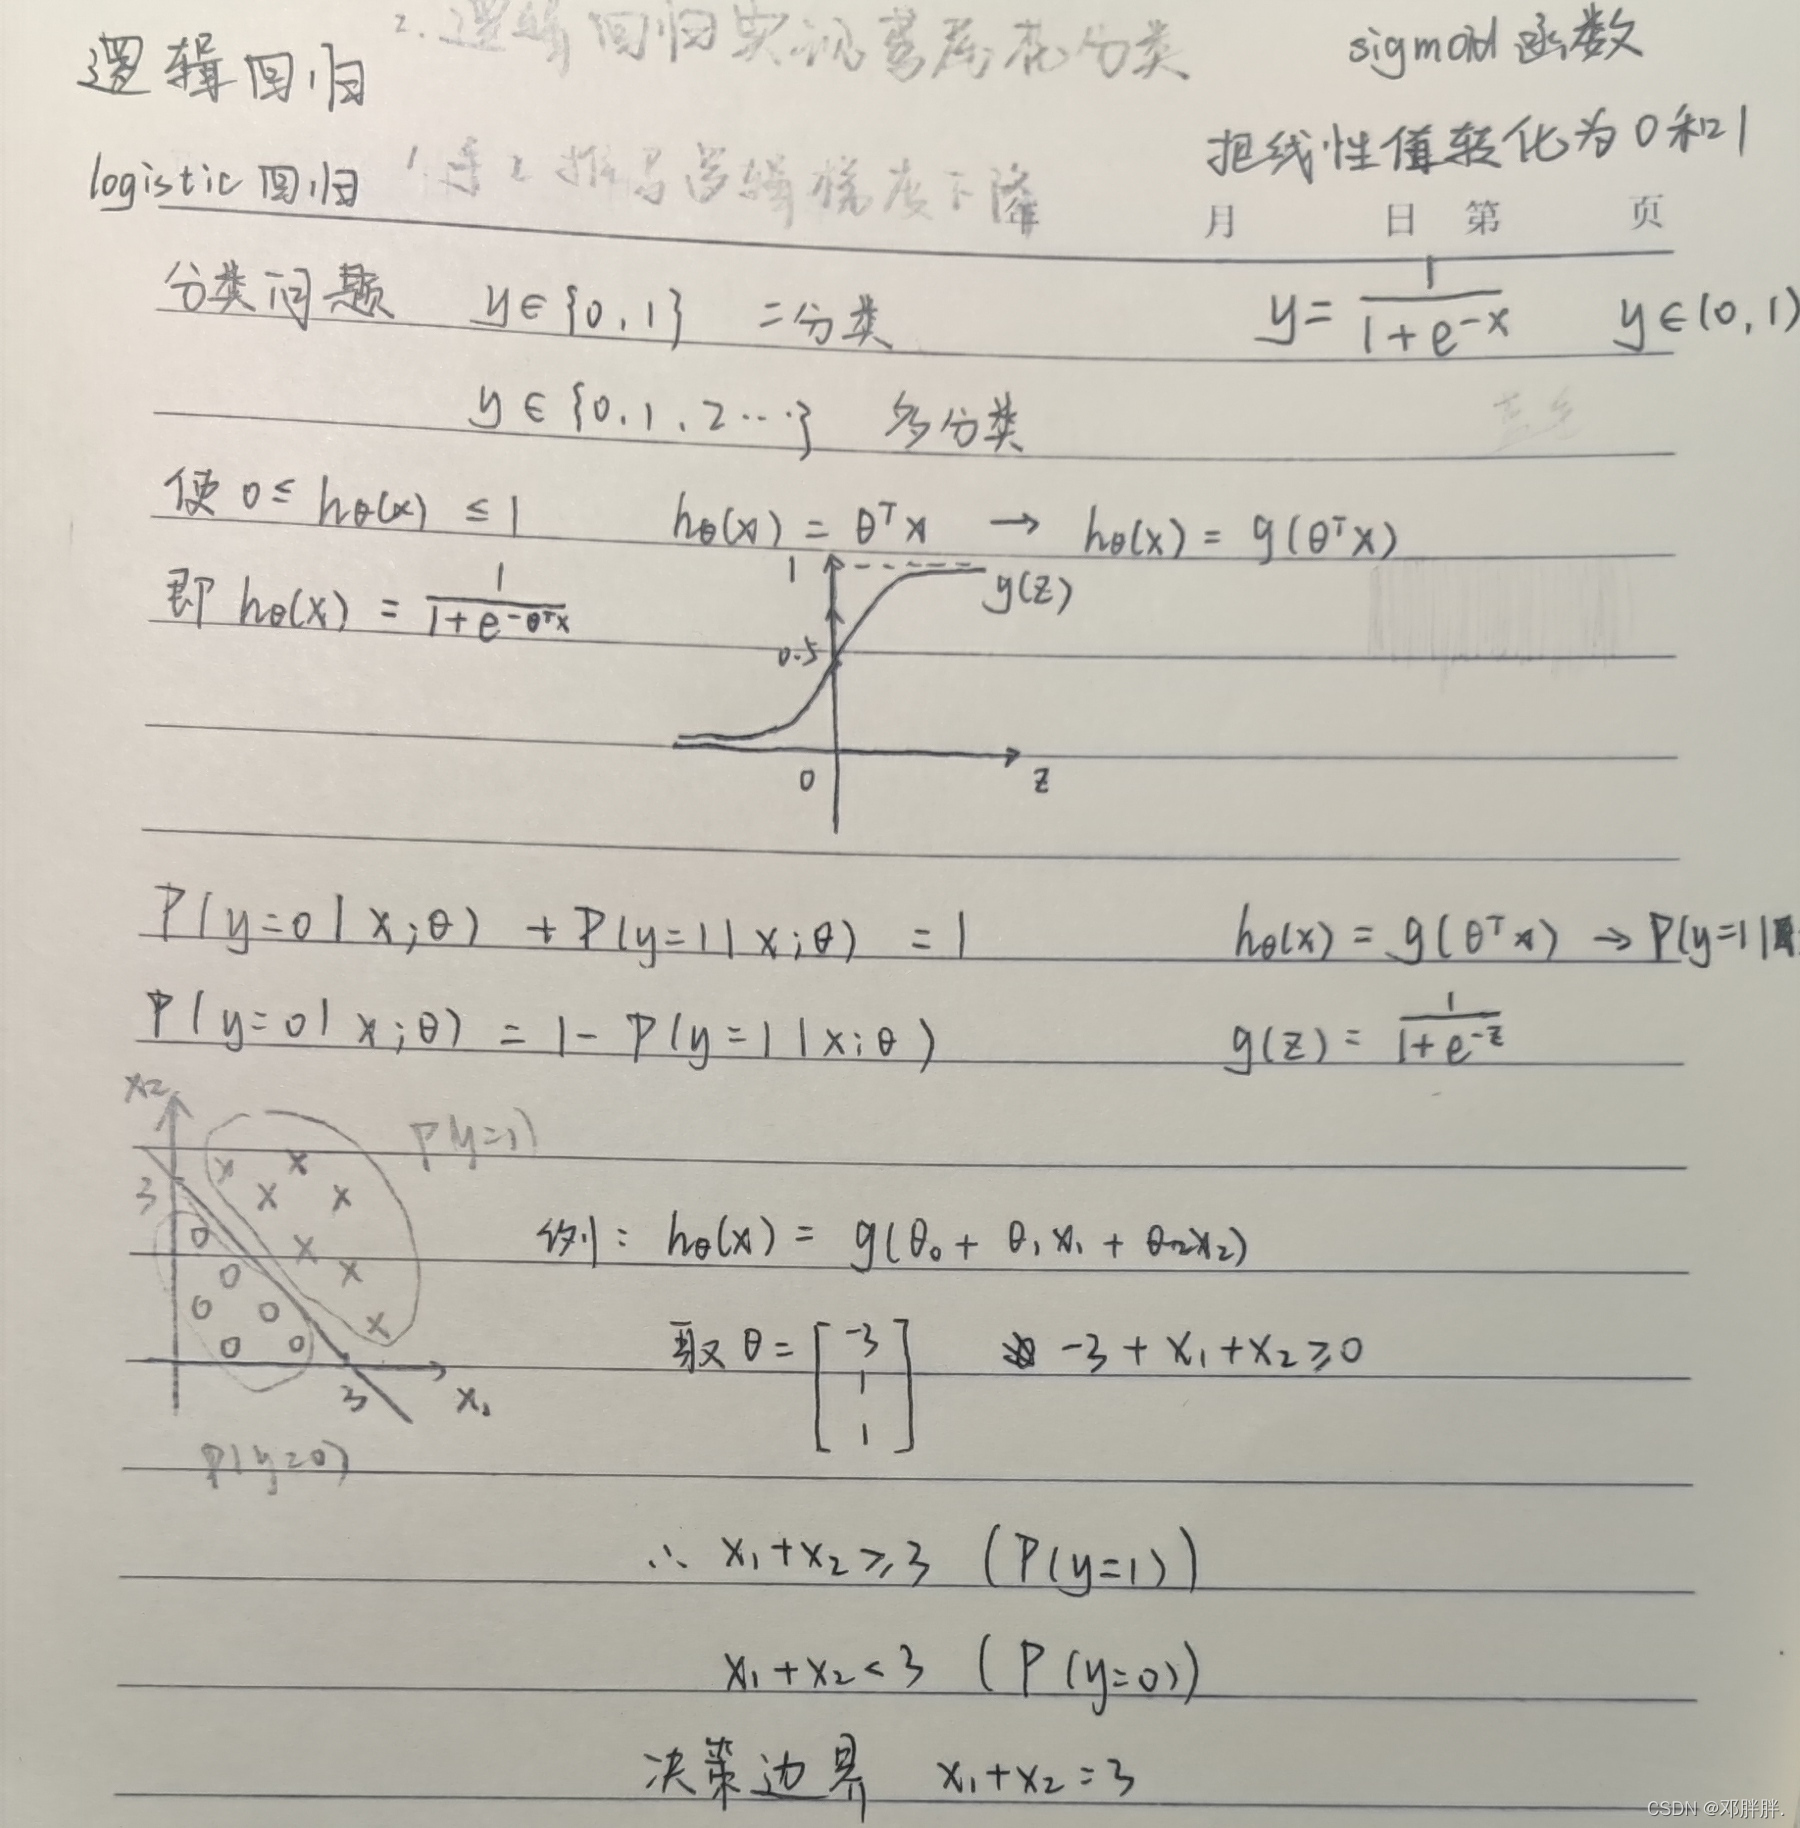 2. 逻辑回归实现鸢尾花分类
sigmoid 函数
逻辑回归
把线性值转化为0和1
logistic 回归
逻辑梯度下降
月 日 第 页
分类问题 y∈{0,1} 二分类
y=1/(1+e^-x) y∈(0,1)
y∈{0,1,2…} 多分类
使 0≤hθ(x)≤1 hθ(x)=θᵀx → hθ(x)=g(θᵀx)
即 hθ(x)=1/(1+e^-θᵀx)
1
g(z)
0.5
0
z
P(y=0|x;θ)+P(y=1|x;θ)=1 hθ(x)=g(θᵀx)→P(y=1|
P(y=0|x;θ)=1-P(y=1|x;θ) g(z)=1/(1+e^-z)
x₂
P(y=1)
3
例: hθ(x)=g(θ₀+θ₁x₁+θ₂x₂)
取θ=[-3 1 1] -3+x₁+x₂≥0
3 x₁
P(y=0)
∴ x₁+x₂≥3 (P(y=1))
x₁+x₂<3 (P(y=0))
决策边界 x₁+x₂=3
CSDN @邓胖胖.